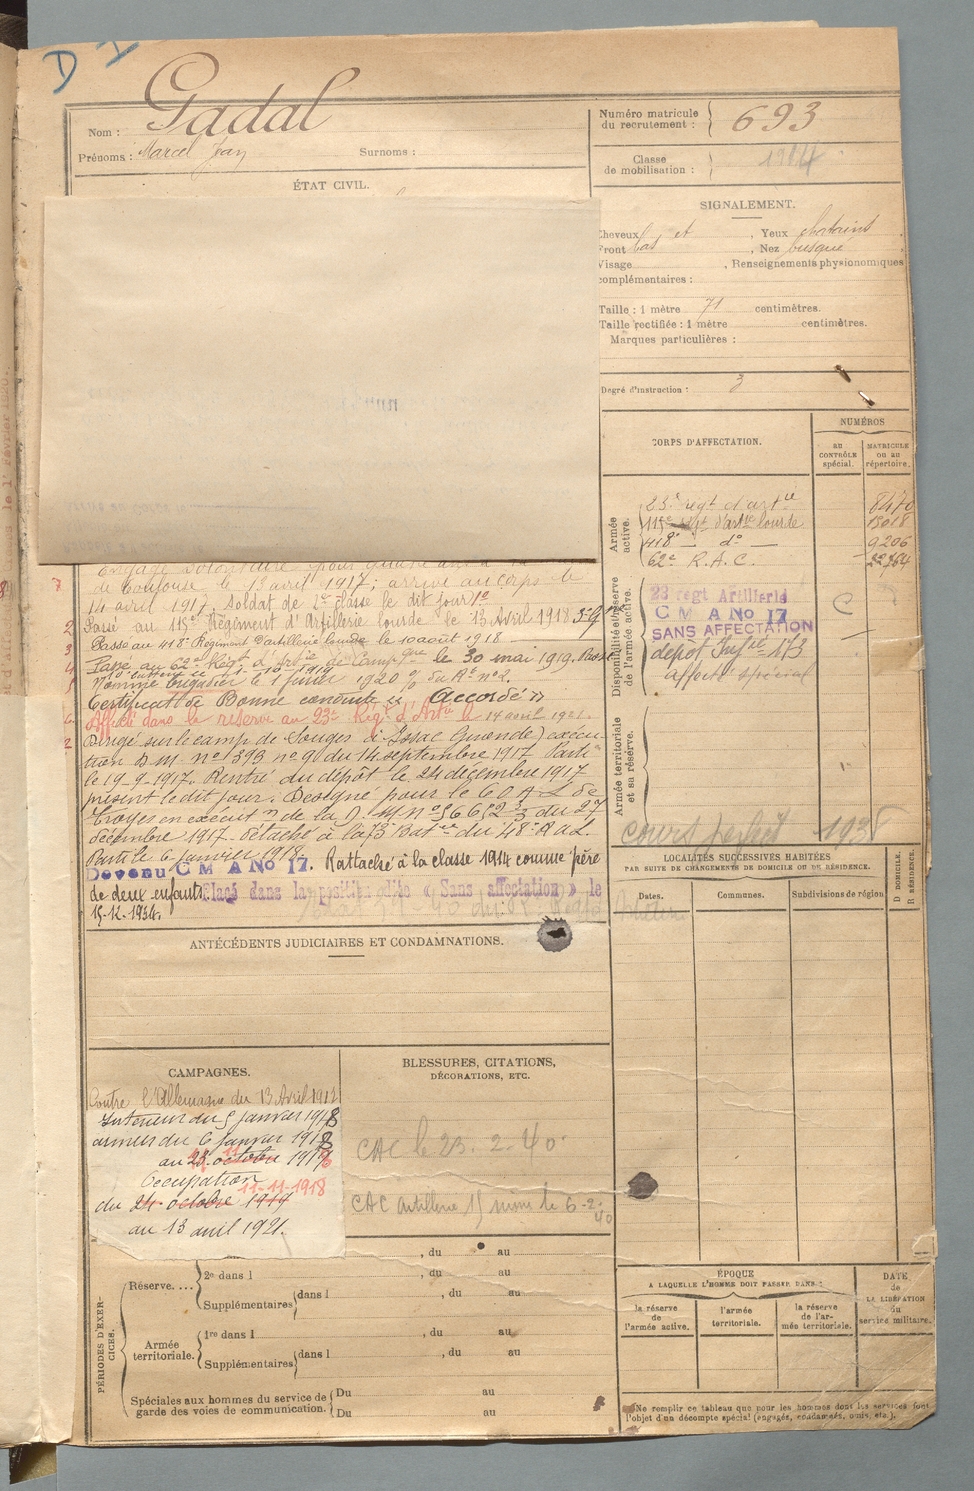 D
Nom : Gadal
Prénoms : Marcel Jean Surnoms :
ÉTAT CIVIL.
Numéro matricule
du recrutement : 693
Classe
de mobilisation : 1914
SIGNALEMENT.
Cheveux , Yeux chatains
Front bas et , Nez busqué
Visage , Renseignements physionomiques
complémentaires :
Taille : 1 mètre 71 centimètres.
Taille rectifiée : 1 mètre centimètres.
Marques particulières :
Degré d'instruction : 3
CORPS D'AFFECTATION.
NUMÉROS
au
CONTRÔLE
spécial.
MATRICULE
ou au
répertoire.
Armée
active.
23e régt d'artie 8470
115e Régt d'artie lourde 15018
418e — do — 9206
62e R.A.C.
Disponibilité et réserve
de l'armée active.
23 regt Artillerie
C M A No 17 C
SANS AFFECTATION
dépot Infie 173
affecté spécial
Armée territoriale
et sa réserve.
1938
Engagé volontaire pour quatre ans à la
de Toulouse le 13 avril 1917; arrivé au corps le
14 avril 1917, Soldat de 2e classe le dit jour
Passé au 115e Régiment d'Artillerie lourde le 13 Avril 1918
Passé au 418e Régiment d'artillerie lourde le 10 août 1918
Passé au 62e Régt d'Artie de Campgne le 30 mai 1919.
Nommé brigadier le 1er 1920
Certificat de Bonne conduite "Accordé"
Affecté dans la réserve au 23e Régt d'Artie le 14 avril 1921.
Dirigé sur le camp de Souges à Issac (Gironde) exécu-
tion D.M. no 393 no 9 du 14 septembre 1917 Parti
le 19-9-1917. Rentré du dépôt le 24 décembre 1917
présent le dit jour. Designé pour le C O A L de
Troyes en exécutn de la D.M. no du 27
décembre 1917 – détaché à la Batie du 48e R a L.
Parti le 6 janvier 1918.
Devenu C M A No 17. Rattaché à la classe 1914 comme père
de deux enfants Placé dans la position dite « Sans affectation » le
15-12-1934.
LOCALITÉS SUCCESSIVES HABITÉES
PAR SUITE DE CHANGEMENTS DE DOMICILE OU DE RÉSIDENCE.
Dates. Communes. Subdivisions de région
D DOMICILE.
R RÉSIDENCE.
ANTÉCÉDENTS JUDICIAIRES ET CONDAMNATIONS.
CAMPAGNES.
Contre l'Allemagne du 13 Avril 1917
Intérieur du 5 janvier 1918
armées du 6 janvier 1918
au 23 octobre 1919
Occupation
11-11-1918
du 24 octobre 1919
au 13 avril 1921.
BLESSURES, CITATIONS,
DÉCORATIONS, ETC.
CAC le 23. 2-40
CAC artillerie 15 le 6-2-40
PÉRIODES D'EXER-
CICES.
, du au
Réserve.... 2e dans l , du au
Supplémentaires dans l , du au
Armée
territoriale.
1re dans l , du au
Supplémentaires dans l , du au
Spéciales aux hommes du service de
garde des voies de communication.
Du au
Du au
ÉPOQUE
A LAQUELLE L'HOMME DOIT PASSER DANS :
la réserve
de
l'armée active.
l'armée
territoriale.
la réserve
de l'ar-
mée territoriale.
DATE
de
LA LIBÉRATION
du
service militaire.
Ne remplir ce tableau que pour les hommes dont les services font
l'objet d'un décompte spécial (engagés, condamnés, omis, etc.).